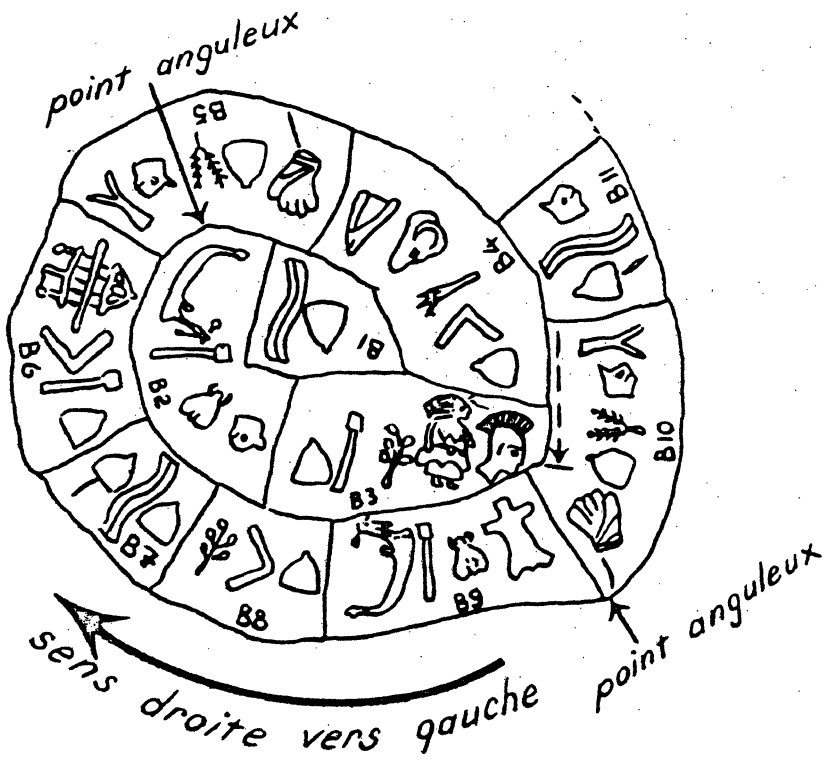 point anguleux
B5
B11
B4
B1
B6
B2
B10
B3
B7
B8
B9
point anguleux
sens droite vers gauche